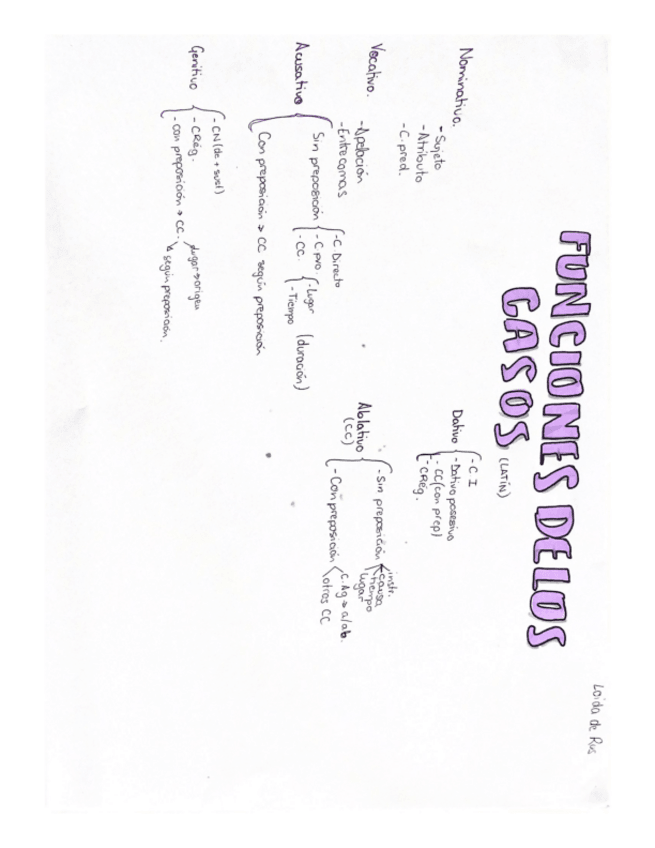 Loida de Rus
FUNCIONES DE LOS
CASOS (LATÍN)
Nominativo.
- Sujeto
- Atributo
- C. pred.
Vocativo.
- Apelación
- Entre comas
Acusativo
Sin preposición
- C Directo
- C pro.
- CC.
- Lugar
- Tiempo (duración)
Con preposición → CC según preposición
Genitivo
- CN (de + sust)
- CRég.
- con preposición → CC.
lugar → origen
según preposición.
Dativo
- C I
- Dativo posesivo
- CC (con prep)
- CRég.
Ablativo
(CC)
- Sin preposición
instr.
causa
tiempo
lugar
- Con preposición
C. Ag → a/ab.
otros CC